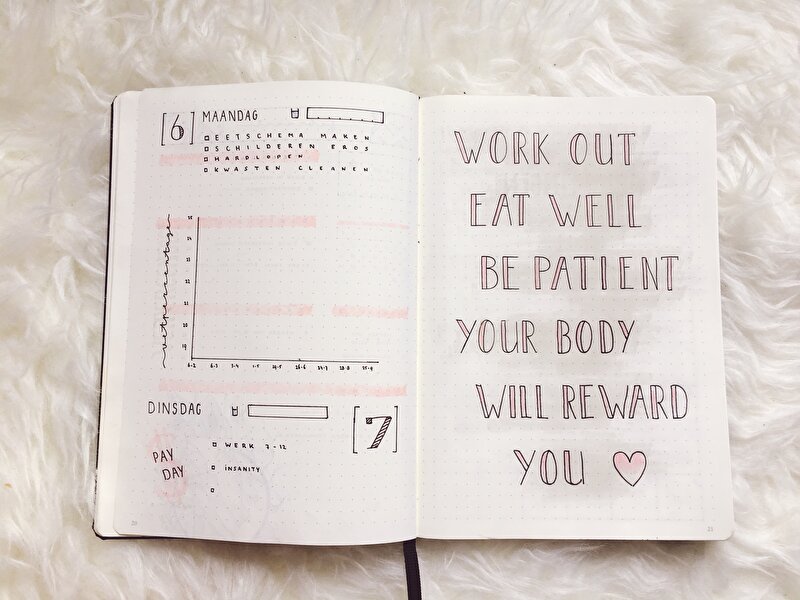 [6] MAANDAG
EETSCHEMA MAKEN
SCHILDEREN EROS
HARDLOPEN
KWASTEN CLEANEN
vetpercentage
25
24
23
22
21
20
19
6-2 6-3 3-4 1-5 29-5 26-6 24-7 28-8 25-9
DINSDAG [7]
PAY
DAY
WERK 7-12
INSANITY
20
WORK OUT
EAT WELL
BE PATIENT
YOUR BODY
WILL REWARD
YOU ♡
21